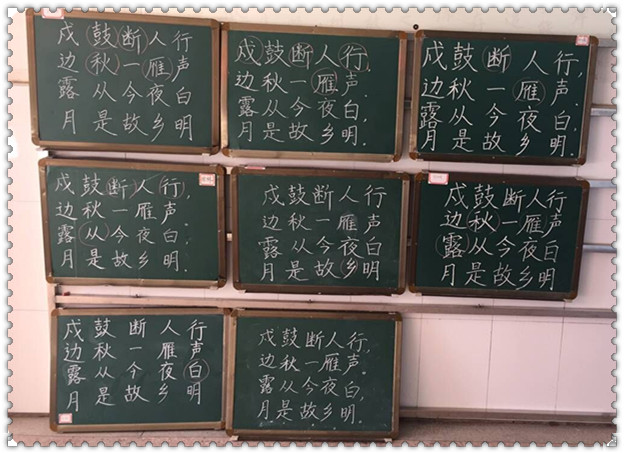 戍鼓断人行
边秋一雁声
露从今夜白
月是故乡明
戍鼓断人行，
边秋一雁声。
露从今夜白，
月是故乡明。
戍鼓断人行，
边秋一雁声。
露从今夜白，
月是故乡明。
戍鼓断人行，
边秋一雁声。
露从今夜白，
月是故乡明。
戍鼓断人行
边秋一雁声。
露从今夜白，
月是故乡明。
戍鼓断人行
边秋一雁声
露从今夜白
月是故乡明
戍鼓断人行
边秋一雁声
露从今夜白
月是故乡明
戍鼓断人行，
边秋一雁声。
露从今夜白，
月是故乡明。